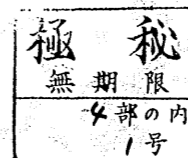 極秘
無期限
4部の内
1号